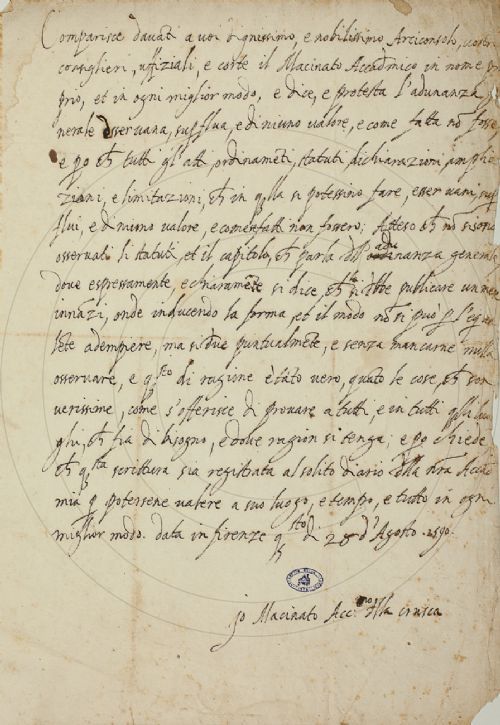 Comparisce davāti a voi Dignissimo, e nobilissimo Arciconsolo, vostri
consiglieri, uffiziali, e corte il Macinato Accadēmico in nome pro
prio, et in ogni miglior modo, e dice, e protesta l'adunanza ge
nerale esser vana, supflua, e di niuno valore, e come fatta nō fosse
e pò ch̄ tutti gl'atti, ordinamēti, statuti, dichiarazioni, amplia
zioni, e limitazioni, ch̄ in q̄lla si potessino fare, esser vani, sup
flui, e di niuno valore, e come fatti non fossero; Atteso ch̄ nō si sono
osservati li statuti, et il capitolo, ch̄ parla dll' adunanza generale
dove espressamente, e chiaramēte si dice, ch̄ si debbe publicare un mese
innāzi, onde inducendo la forma, et il modo nō si può p̱ l'equipo
lēte adempiere, ma si due puntualmēte, e senza mancarne nulla
osservare, e q̄sto di ragione è tāto vero, quāto le cose, ch̄ son
verissime, come s'offerisce di provare a tutti, e in tutti q̄lli luo
ghi, ch̄ fia di bisogno, e dove ragion si tenga; e pò chiede
ch̄ q̄sta scrittura sia registrata al solito diario dlla n̄ra Accade
mia p̱ potersene valere a suo luogo, e tempo, e tutto in ogni
miglior modo. data in firenze q̄sto dì 28 d'Agosto 1590.
Jo Macinato Acc.mo dlla crusca